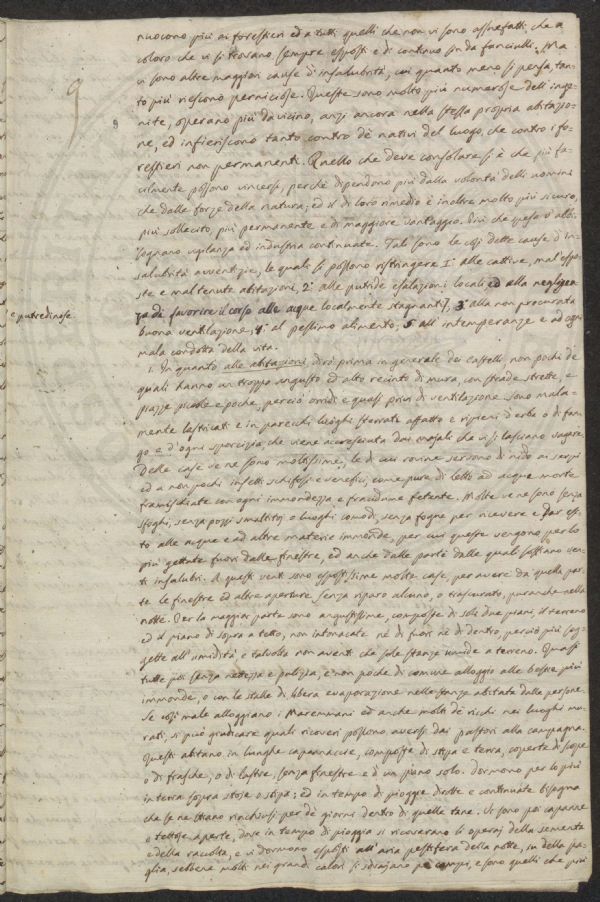 nuocono più ai forestieri ed a tutti quelli che non vi sono assuefatti, che a
coloro che vi si trovano sempre esposti e di continuo fin da fanciulli. Ma
vi sono altre maggiori cause d'insalubrità, cui quanto meno si pensa, tan-
to più riescono perniciose. Queste sono molto più numerose dell'inge-
nite, operano più da vicino, anzi ancora nella stessa propria abitazio-
ne, ed infieriscono tanto contro de' nativi del luogo, che contro i fo-
restieri non permanenti. Quello che deve consolare si è che più fa-
cilmente possono vincersi, perchè dipendono più dalla volontà delli uomini
che dalle forze della natura; ed il di loro rimedio è inoltre molto più sicuro,
più sollecito, più permanente e di maggiore vantaggio.
sognano vigilanza ed industria continuate. Tali sono le così dette cause d'in-
salubrità avventizie, le quali si possono ristringere 1.° alle cattive, mal espo-
ste e mal tenute abitazioni, 2.° alle putride esalazioni locali ed alla negligen
za di favorire il corso alle acque localmente stagnanti, 3.° alla non procurata
e putredinose
buona ventilazione, 4.° al pessimo alimento, 5.° all'intemperanze e ad ogni
mala condotta della vita.
1. In quanto alle abitazioni, dirò prima in generale dei castelli, non pochi de'
quali hanno un troppo angusto ed alto recinto di mura, con strade strette, e
piazze piccole e poche, perciò orridi e quasi privi di ventilazione sono mala-
mente lastricati e in parecchi luoghi sterrati affatto e ripieni d'erbe o di fan
go e d'ogni sporcizia, che viene accresciuta dai majali che vi si lasciano vagare.
Delle case ve ne sono moltissime, le di cui rovine servono di nido ai serpi
ed a non pochi insetti schifosi e venefici, come pure di letto ad acque morte
framischiate con ogni immondezza e fracidume fetente. Molte ve ne sono senza
sfoghi, senza pozzi smaltitoj o luoghi comodi, senza fogne per ricevere e dar esi-
to alle acque e ad altre materie immonde, per cui queste vengono per lo
più gettate fuori dalle finestre, ed anche dalle parte dalle quali soffiano ven-
ti insalubri. A questi venti sono espostissime molte case, per avere da quella par
te le finestre ed altre aperture senza riparo alcuno, o trascurato, pur anche nella
notte. Per la maggior parte sono angustissime, composte di soli due piani, il terreno
ed il piano di sopra a tetto, non intonacate né di fuori né di dentro, perciò più sog
gette all'umidità e talvolta non aventi che sole stanze umide a terreno. Quasi
tutte poi senza nettezza e pulizia, e non poche di comune alloggio alle bestie più
immonde, o con le stalle di libera evaporazione nelle stanze abitate dalle persone.
Se così male alloggiano i Maremmani ed anche molti de' ricchi nei luoghi mu
rati, si può giudicare quali ricoveri possono aversi dai pastori alla campagna.
Questi abitano in lunghe capannaccie, composte di stipa e terra, coperte di scope
o di frasche, o di lastre, senza finestre e d'un piano solo. Dormono per lo più
in terra sopra stoje o stipa; ed in tempo di pioggie dirotte e continuate bisogna
che se ne stiano rinchiusi per de' giorni dentro di quelle tane. Vi sono poi capanne
o tettoje aperte, dove in tempo di pioggia si ricoverano li operaj della sementa
e della raccolta, e vi dormono esposti all'aria pestifera della notte, su della pa
glia, sebbene molti nei grandi calori si sdrajano pe' campi, e sono quelli che più